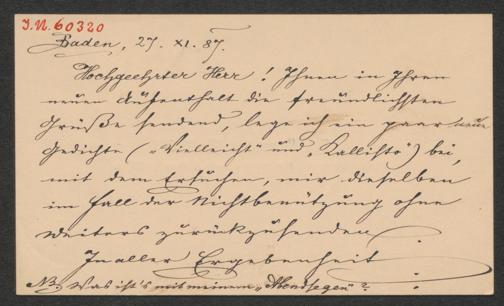 I.N. 60320
Baden, 27. XI. 87.
Hochgeehrter Herr! Ihnen in Ihren
neuen Aufenthalt die freundlichsten
Grüße sendend, lege ich ein paar neue
Gedichte („Vielleicht“ und „Kallisto“) bei,
mit dem Ersuchen, mir dieselben
im Fall der Nichtbenützung ohne
weiters zurückzusenden.
In aller Ergebenheit
NB. Was ist's mit meinem „Abendsegen“?